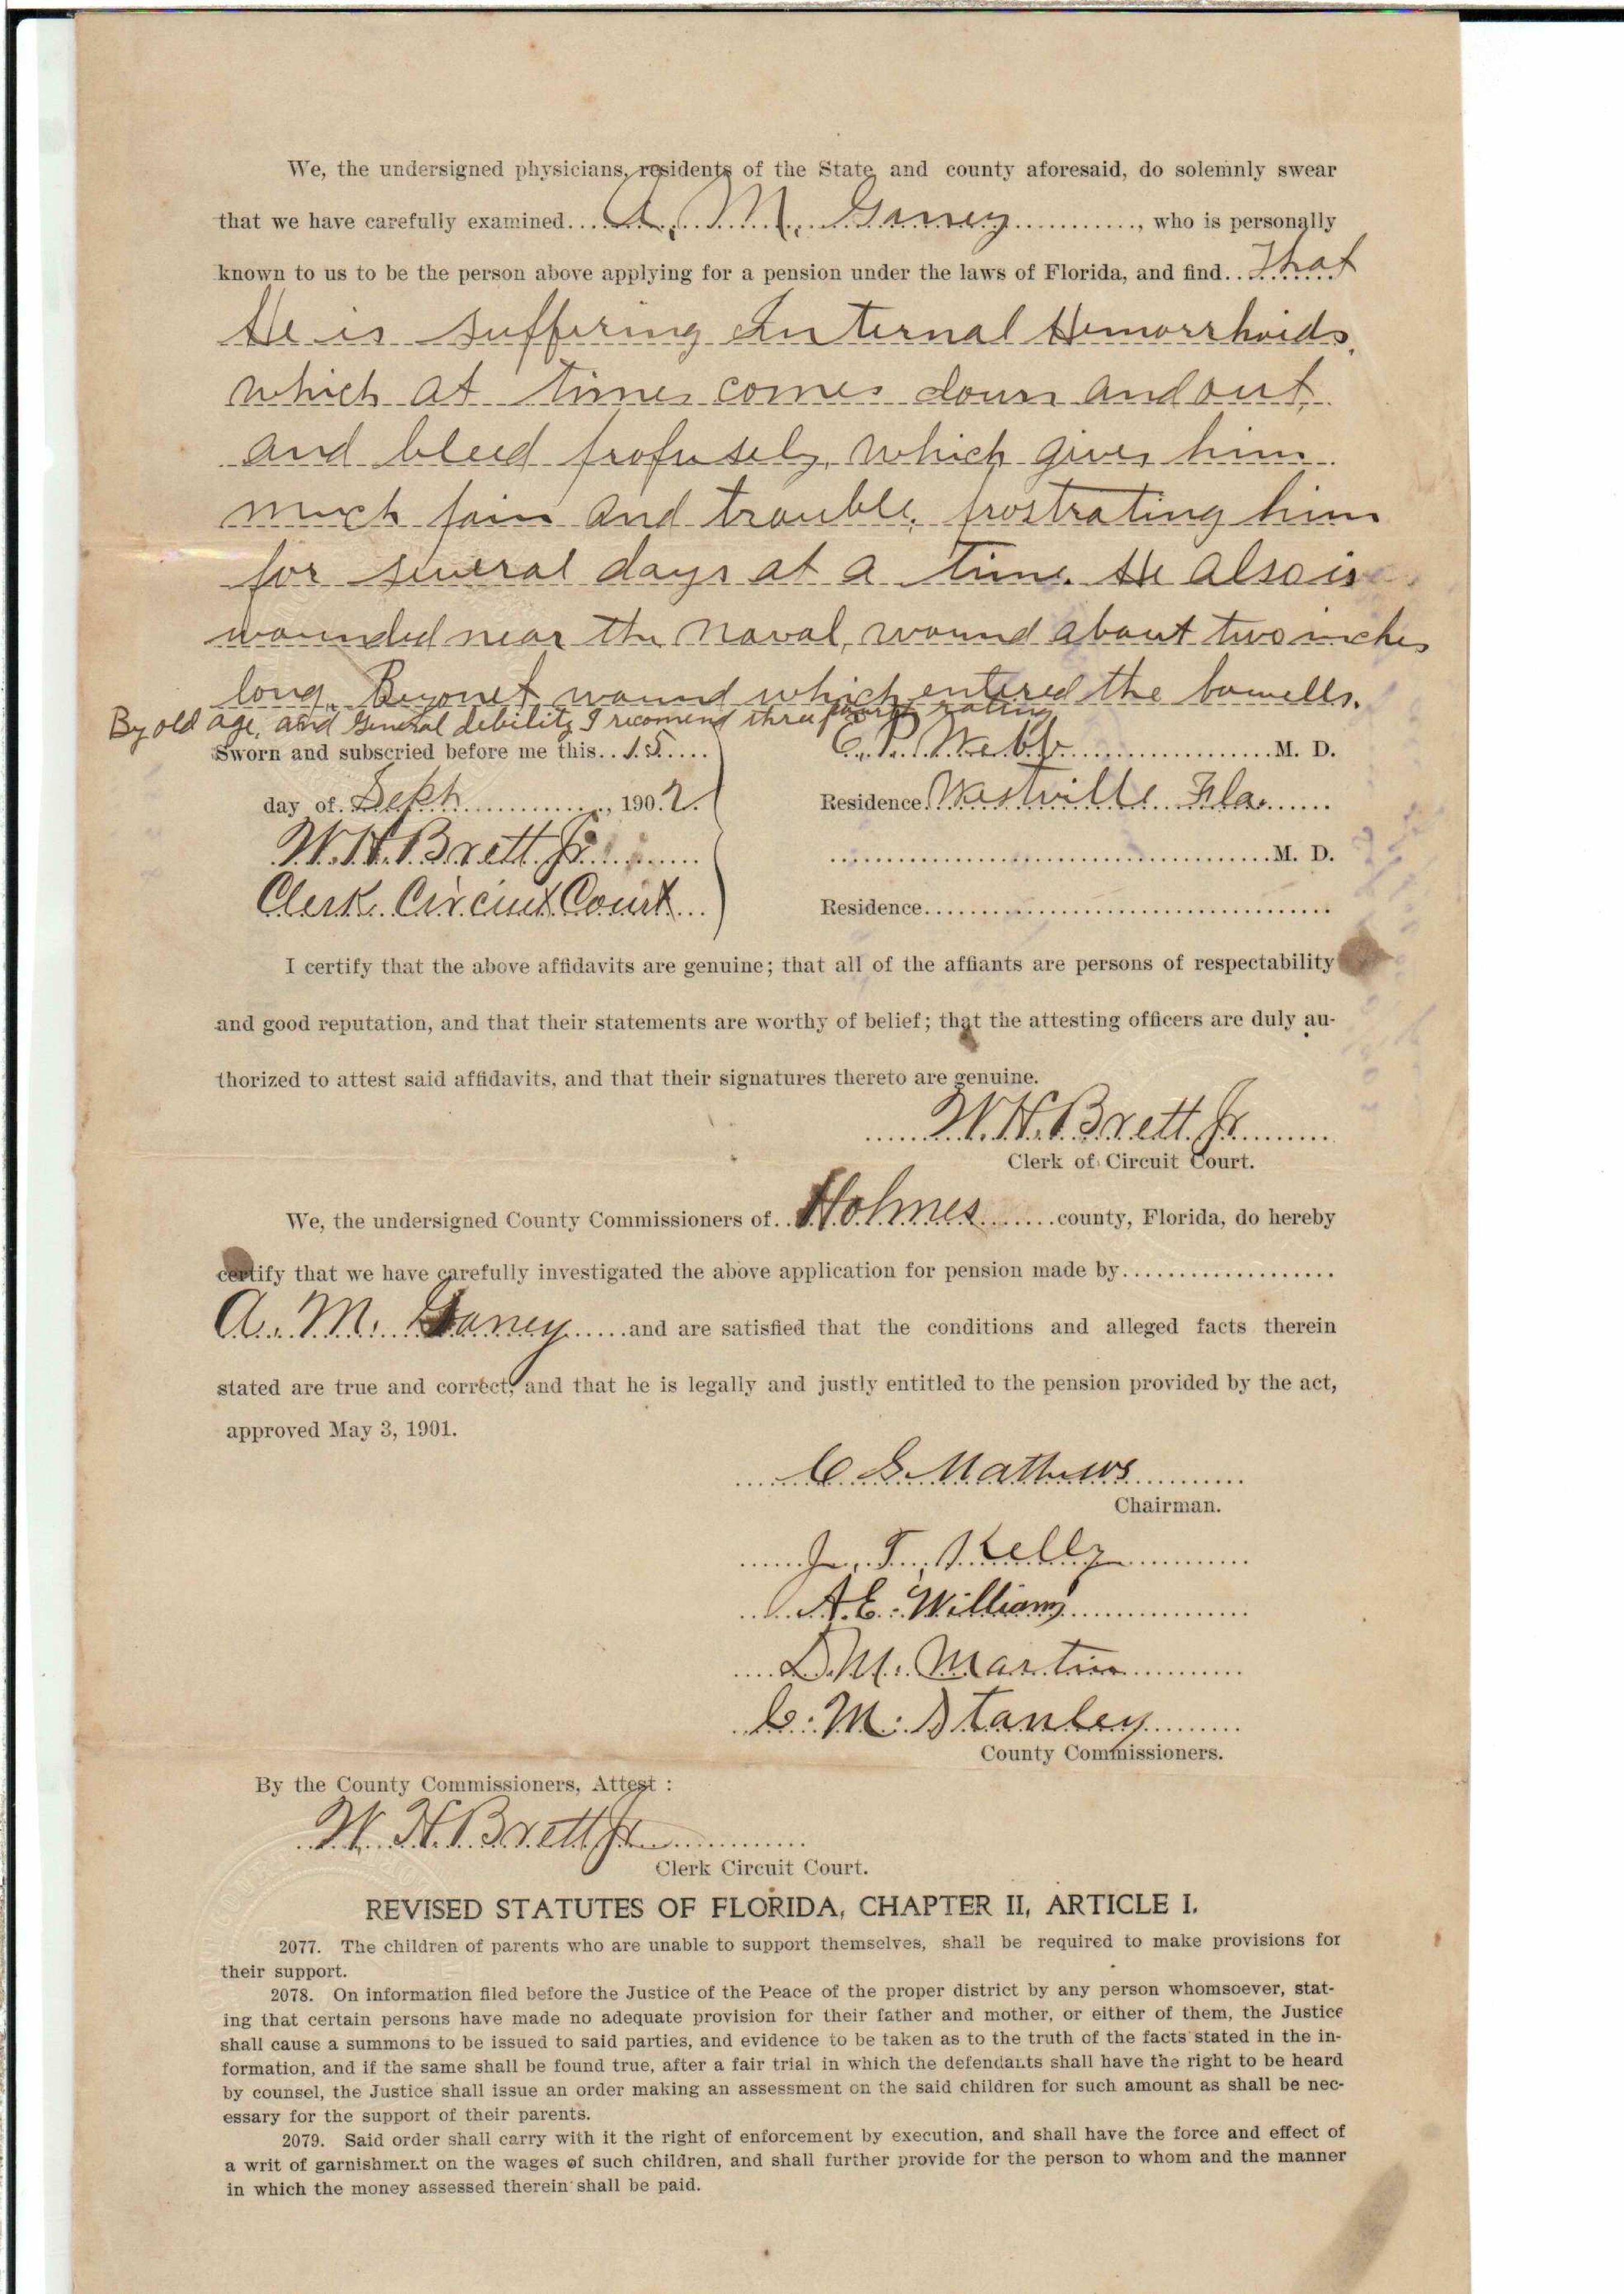 We, the undersigned physicians, residents of the State and county aforesaid, do solemnly swear
that we have carefully examined A. M. Ganey, who is personally
known to us to be the person above applying for a pension under the laws of Florida, and find That
He is suffering Internal Hemorrhoids,
which at times comes down and out
and bleed profusely, which gives him
much pain and trouble, prostrating him
for several days at a time. He also is
wounded near the naval, wound about two inches
long. Beyonet wound which entered the bowells.
By old age, and General debility I recomend three fourth rating
Sworn and subscried before me this 15
day of Sept, 1902.
W. H. Brett Jr.
Clerk Circuit Court
E. P. Webb M. D.
Residence Westville Fla.
M. D.
Residence
I certify that the above affidavits are genuine; that all of the affiants are persons of respectability
and good reputation, and that their statements are worthy of belief; that the attesting officers are duly au-
thorized to attest said affidavits, and that their signatures thereto are genuine.
W. H. Brett Jr.
Clerk of Circuit Court.
We, the undersigned County Commissioners of Holmes county, Florida, do hereby
certify that we have carefully investigated the above application for pension made by
A. M. Ganey and are satisfied that the conditions and alleged facts therein
stated are true and correct, and that he is legally and justly entitled to the pension provided by the act,
approved May 3, 1901.
C G Mathews
Chairman.
J. T. Kelly
A. E. Williams
D. M. Martin
C. M. Stanley
County Commissioners.
By the County Commissioners, Attest :
W. H. Brett Jr
Clerk Circuit Court.
REVISED STATUTES OF FLORIDA, CHAPTER II, ARTICLE I.
2077. The children of parents who are unable to support themselves, shall be required to make provisions for
their support.
2078. On information filed before the Justice of the Peace of the proper district by any person whomsoever, stat-
ing that certain persons have made no adequate provision for their father and mother, or either of them, the Justice
shall cause a summons to be issued to said parties, and evidence to be taken as to the truth of the facts stated in the in-
formation, and if the same shall be found true, after a fair trial in which the defendants shall have the right to be heard
by counsel, the Justice shall issue an order making an assessment on the said children for such amount as shall be nec-
essary for the support of their parents.
2079. Said order shall carry with it the right of enforcement by execution, and shall have the force and effect of
a writ of garnishment on the wages of such children, and shall further provide for the person to whom and the manner
in which the money assessed therein shall be paid.